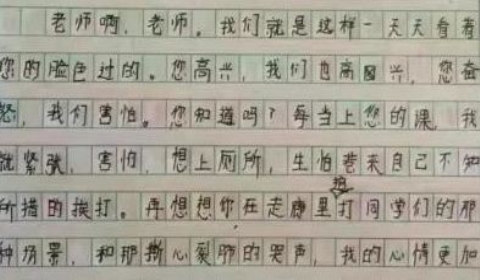 老师啊,老师。我们就是这样一天天看着
您的脸色过的。您高兴,我们也高兴,您奋
怒,我们害怕。您知道吗?每当上您的课,我
就紧张,害怕,想上厕所,生怕惹来自己不知
所措的挨打。再想想你在走廊里拍打同学们的那
种场景,和那撕心裂肺的哭声,我的心情更加